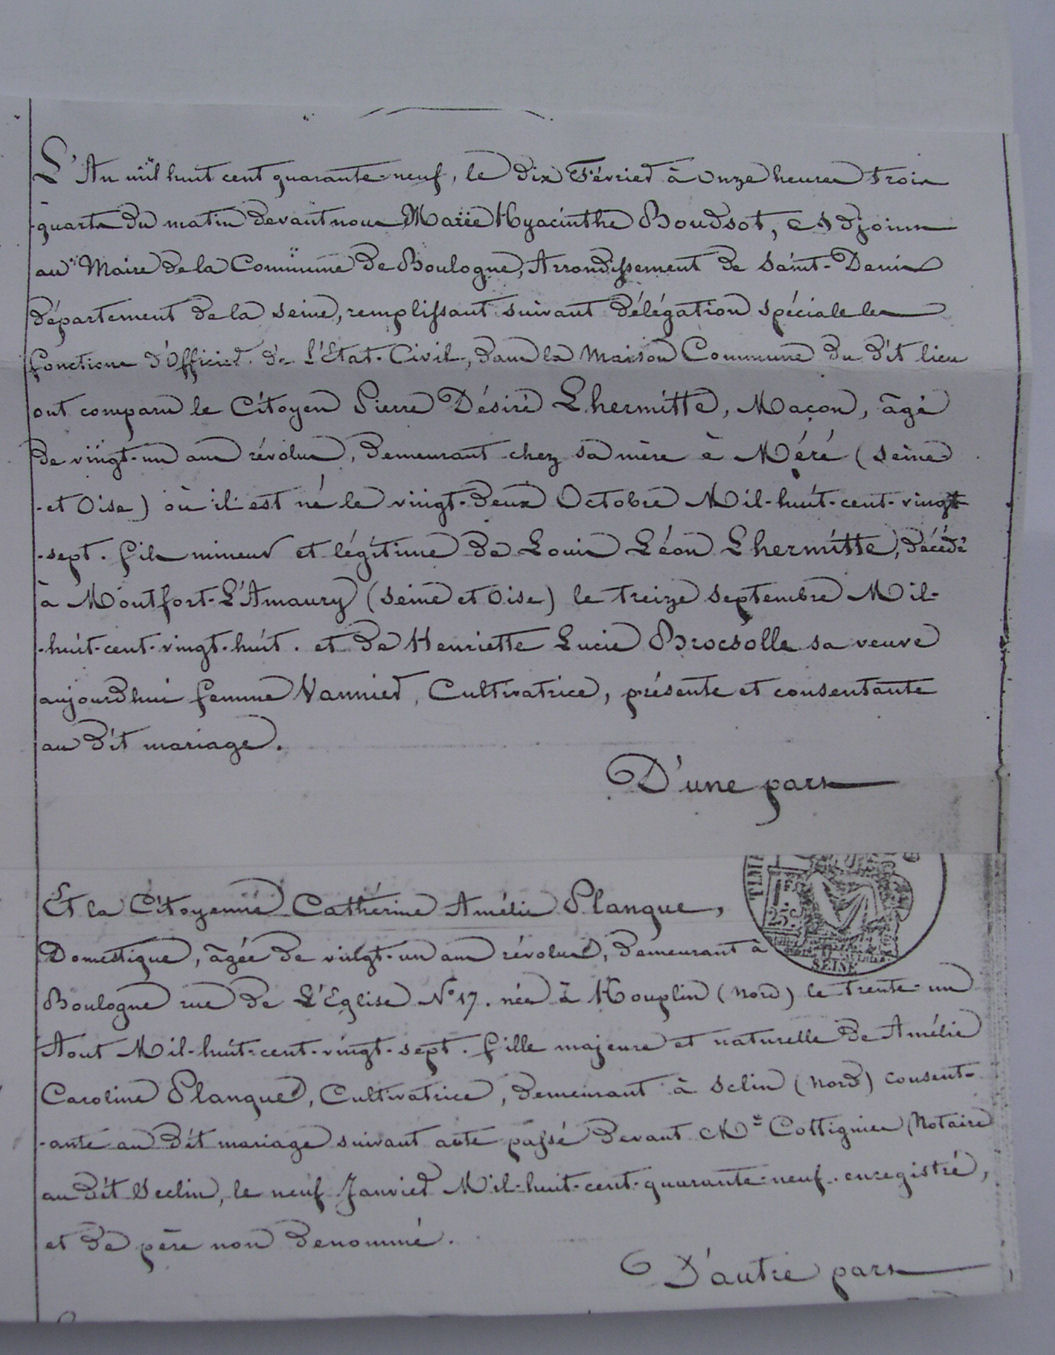 L'An mil huit cent quarante-neuf, le dix Février à onze heures trois
quarts du matin devant nous Marie Hyacinthe Boudsot, Adjoint
au Maire de la Commune de Boulogne, Arrondissement de Saint-Denis
département de la Seine, remplissant suivant délégation spéciale les
fonctions d'Officier de L'Etat-Civil, dans la Maison Commune du dit lieu
ont comparu le Citoyen Pierre Désiré Lhermitte, Maçon, âgé
de vingt-un ans révolus, demeurant chez sa mère à Méré (Seine
-et Oise) où il est né le vingt-deux Octobre Mil-huit-cent-vingt
-sept. fils mineur et légitime de Louis Léon Lhermitte, décédé
à Montfort-L'Amaury (Seine et Oise) le treize Septembre Mil-
-huit-cent-vingt-huit. et de Henriette Lucie Brocsolle sa veuve
aujourdhui femme Vannier, Cultivatrice, présente et consentante
au dit mariage.
D'une part
Et la Citoyenne Cathérine Amélie Planque,
Domestique, âgée de vingt-un ans révolus, demeurant à
Boulogne rue de L'Eglise N° 17. née à Houplin (Nord) le trente-un
Aout Mil-huit-cent-vingt-sept. fille majeure et naturelle de Amélie
Caroline Planque, Cultivatrice, demeurant à Sclin (Nord) consent-
-ante au dit mariage suivant acte passé devant Me Cottignies Notaire
au dit Seclin, le neuf Janvier Mil-huit-cent-quarante-neuf. enregistré,
et de père non denommé.
D'autre part
1F
25c
SEINE